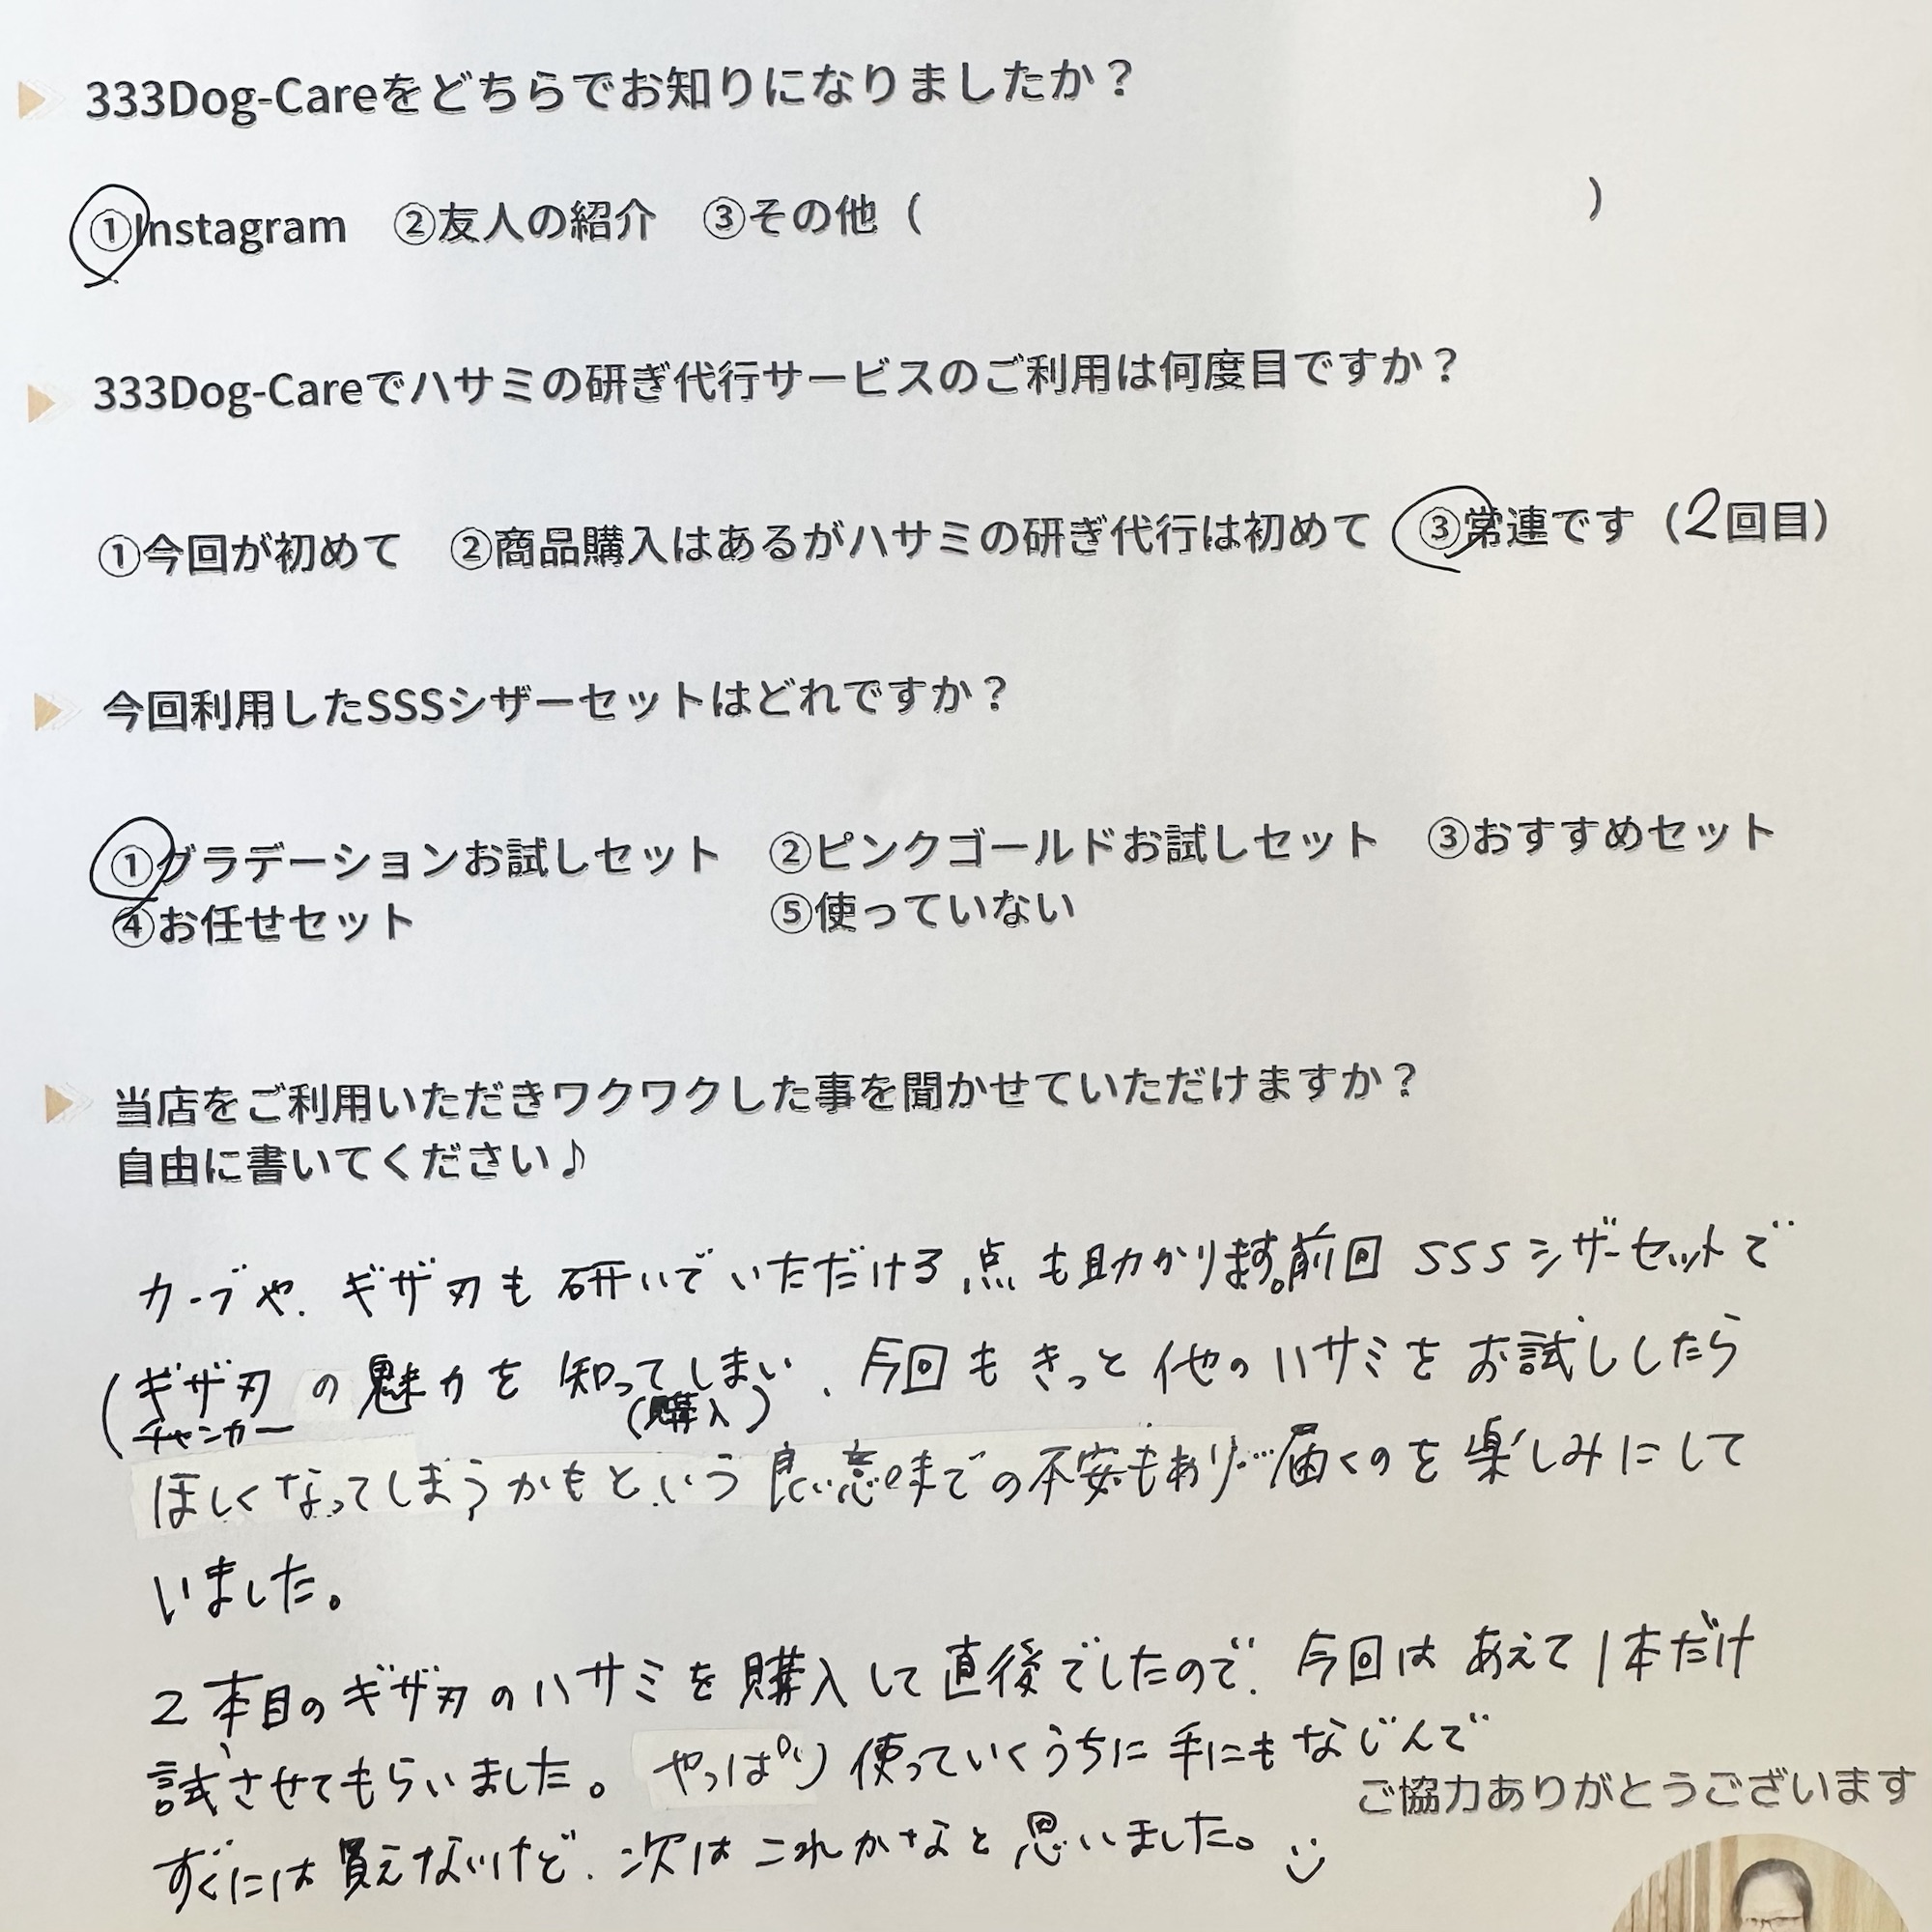 333Dog-Careをどちらでお知りになりましたか？
①Instagram　②友人の紹介　③その他（　　　　　　　　　　　　　　　）
333Dog-Careでハサミの研ぎ代行サービスのご利用は何度目ですか？
①今回が初めて　②商品購入はあるがハサミの研ぎ代行は初めて　③常連です（2回目）
今回利用したSSSシザーセットはどれですか？
①グラデーションお試しセット　②ピンクゴールドお試しセット　③おすすめセット
④お任せセット　⑤使っていない
当店をご利用いただきワクワクした事を聞かせていただけますか？
自由に書いてください♪
カーブや、ギザ刃も研いでいただける点も助かります。前回SSSシザーセットで
（ギザ刃の魅力を知ってしまい、今回もきっと他のハサミをお試ししたら
チャンカー　（購入）
ほしくなってしまうかもという良い意味での不安もあり…届くのを楽しみにして
いました。
2本目のギザ刃のハサミを購入して直後でしたので、今回はあえて1本だけ
試させてもらいました。やっぱり使っていくうちに手にもなじんで
ご協力ありがとうございます
すぐには買えないけど、次はこれかなと思いました。